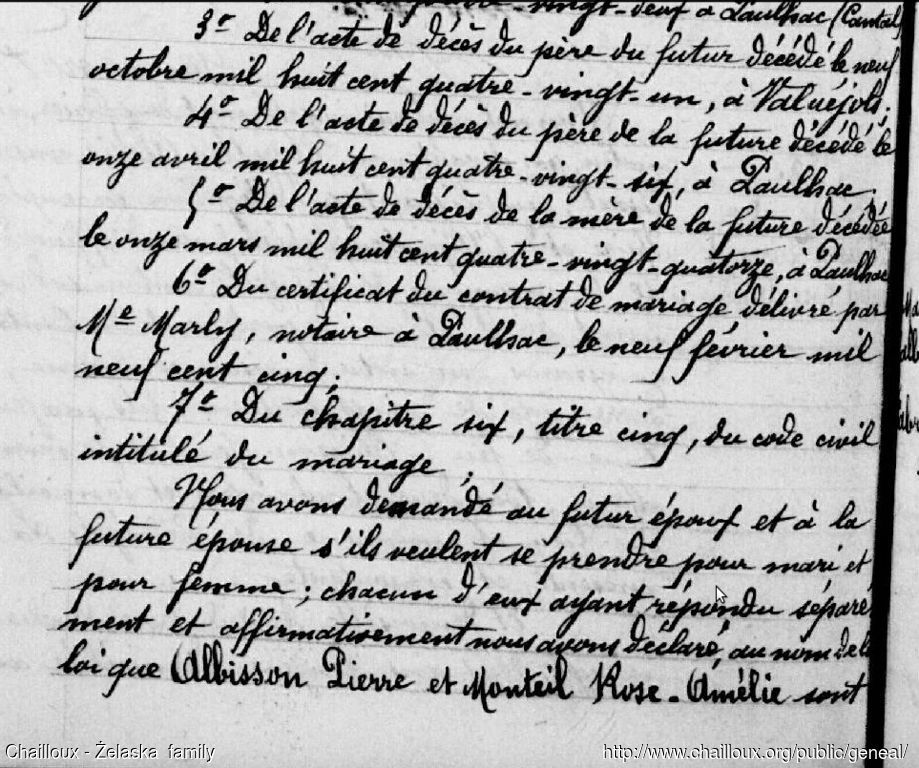 vingt-deux à Paulhac (Cantal)
3º De l'acte de décès du père du futur décédé le neuf
octobre mil huit cent quatre-vingt-un, à Valuéjols;
4º De l'acte de décès du père de la future décédé le
onze avril mil huit cent quatre-vingt-six, à Paulhac;
5º De l'acte de décès de la mère de la future décédée
le onze mars mil huit cent quatre-vingt-quatorze, à Paulhac
6º Du certificat du contrat de mariage délivré par
Me Marly, notaire à Paulhac, le neuf février mil
neuf cent cinq;
7º Du chapitre six, titre cinq, du code civil
intitulé du mariage;
Nous avons demandé au futur époux et à la
future épouse s'ils veulent se prendre pour mari et
pour femme; chacun d'eux ayant répondu séparé
ment et affirmativement nous avons déclaré, au nom de la
loi que Albisson Pierre et Monteil Rose-Amélie sont
Chailloux - Želaska family
http://www.chailloux.org/public/geneal/